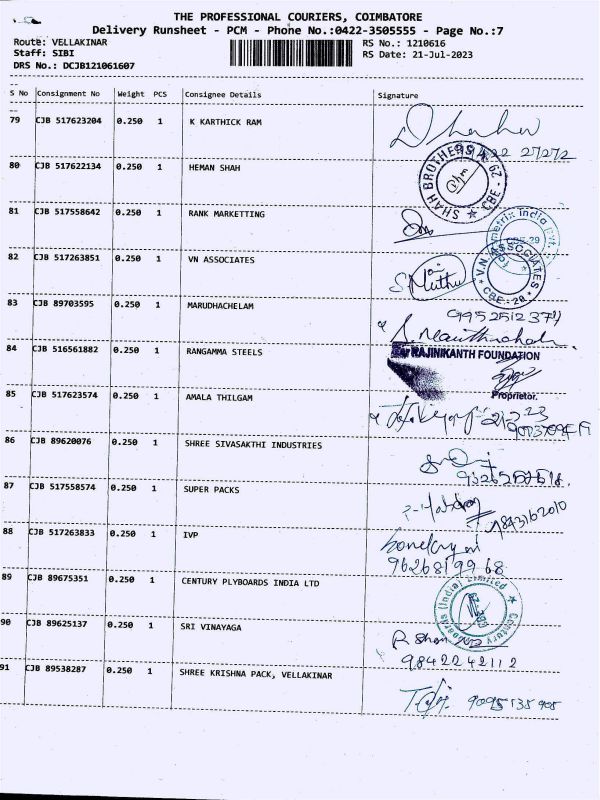 THE PROFESSIONAL COURIERS, COIMBATORE
Delivery Runsheet - PCM - Phone No.:0422-3505555 - Page No.:7
Route: VELLAKINAR RS No.: 1210616
Staff: SIBI RS Date: 21-Jul-2023
DRS No.: DCJB121061607
S No Consignment No Weight PCS Consignee Details Signature
79 CJB 517623204 0.250 1 K KARTHICK RAM
80 CJB 517622134 0.250 1 HEMAN SHAH
SHAH BROTHERS CBE - 29
81 CJB 517558642 0.250 1 RANK MARKETTING
82 CJB 517263851 0.250 1 VN ASSOCIATES
V.N. ASSOCIATES CBE - 29
83 CJB 89703595 0.250 1 MARUDHACHELAM
84 CJB 516561882 0.250 1 RANGAMMA STEELS
RAJINIKANTH FOUNDATION
Proprietor.
85 CJB 517623574 0.250 1 AMALA THILGAM
86 CJB 89620076 0.250 1 SHREE SIVASAKTHI INDUSTRIES
87 CJB 517558574 0.250 1 SUPER PACKS
9843162010
88 CJB 517263833 0.250 1 IVP
9626819968
89 CJB 89675351 0.250 1 CENTURY PLYBOARDS INDIA LTD
Century Plyboards (India) Limited
90 CJB 89625137 0.250 1 SRI VINAYAGA
9842242112
91 CJB 89538287 0.250 1 SHREE KRISHNA PACK, VELLAKINAR
9095135905